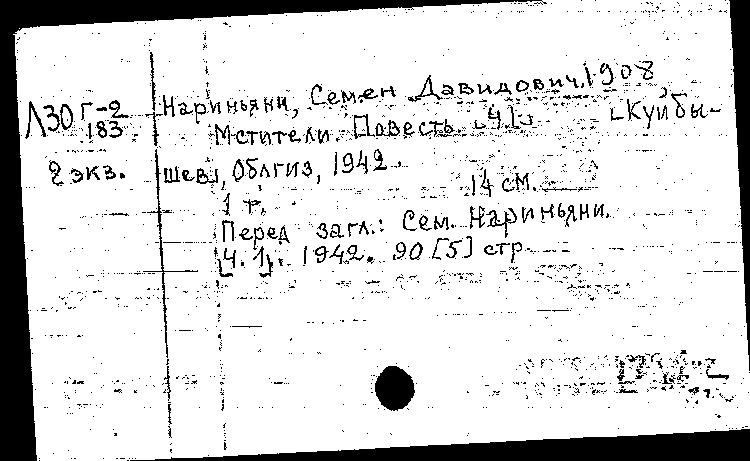 Л30 Г-2
183
2 экз.
Нариньяни, Семен Давидович, 1908
Мстители. Повесть. Ч1 [Куйбы-
шев], Облгиз, 1942.
1 т. 14 см.
Перед загл.: Сем. Нариньяни.
[Ч. 1]. 1942. 90 [5] стр.